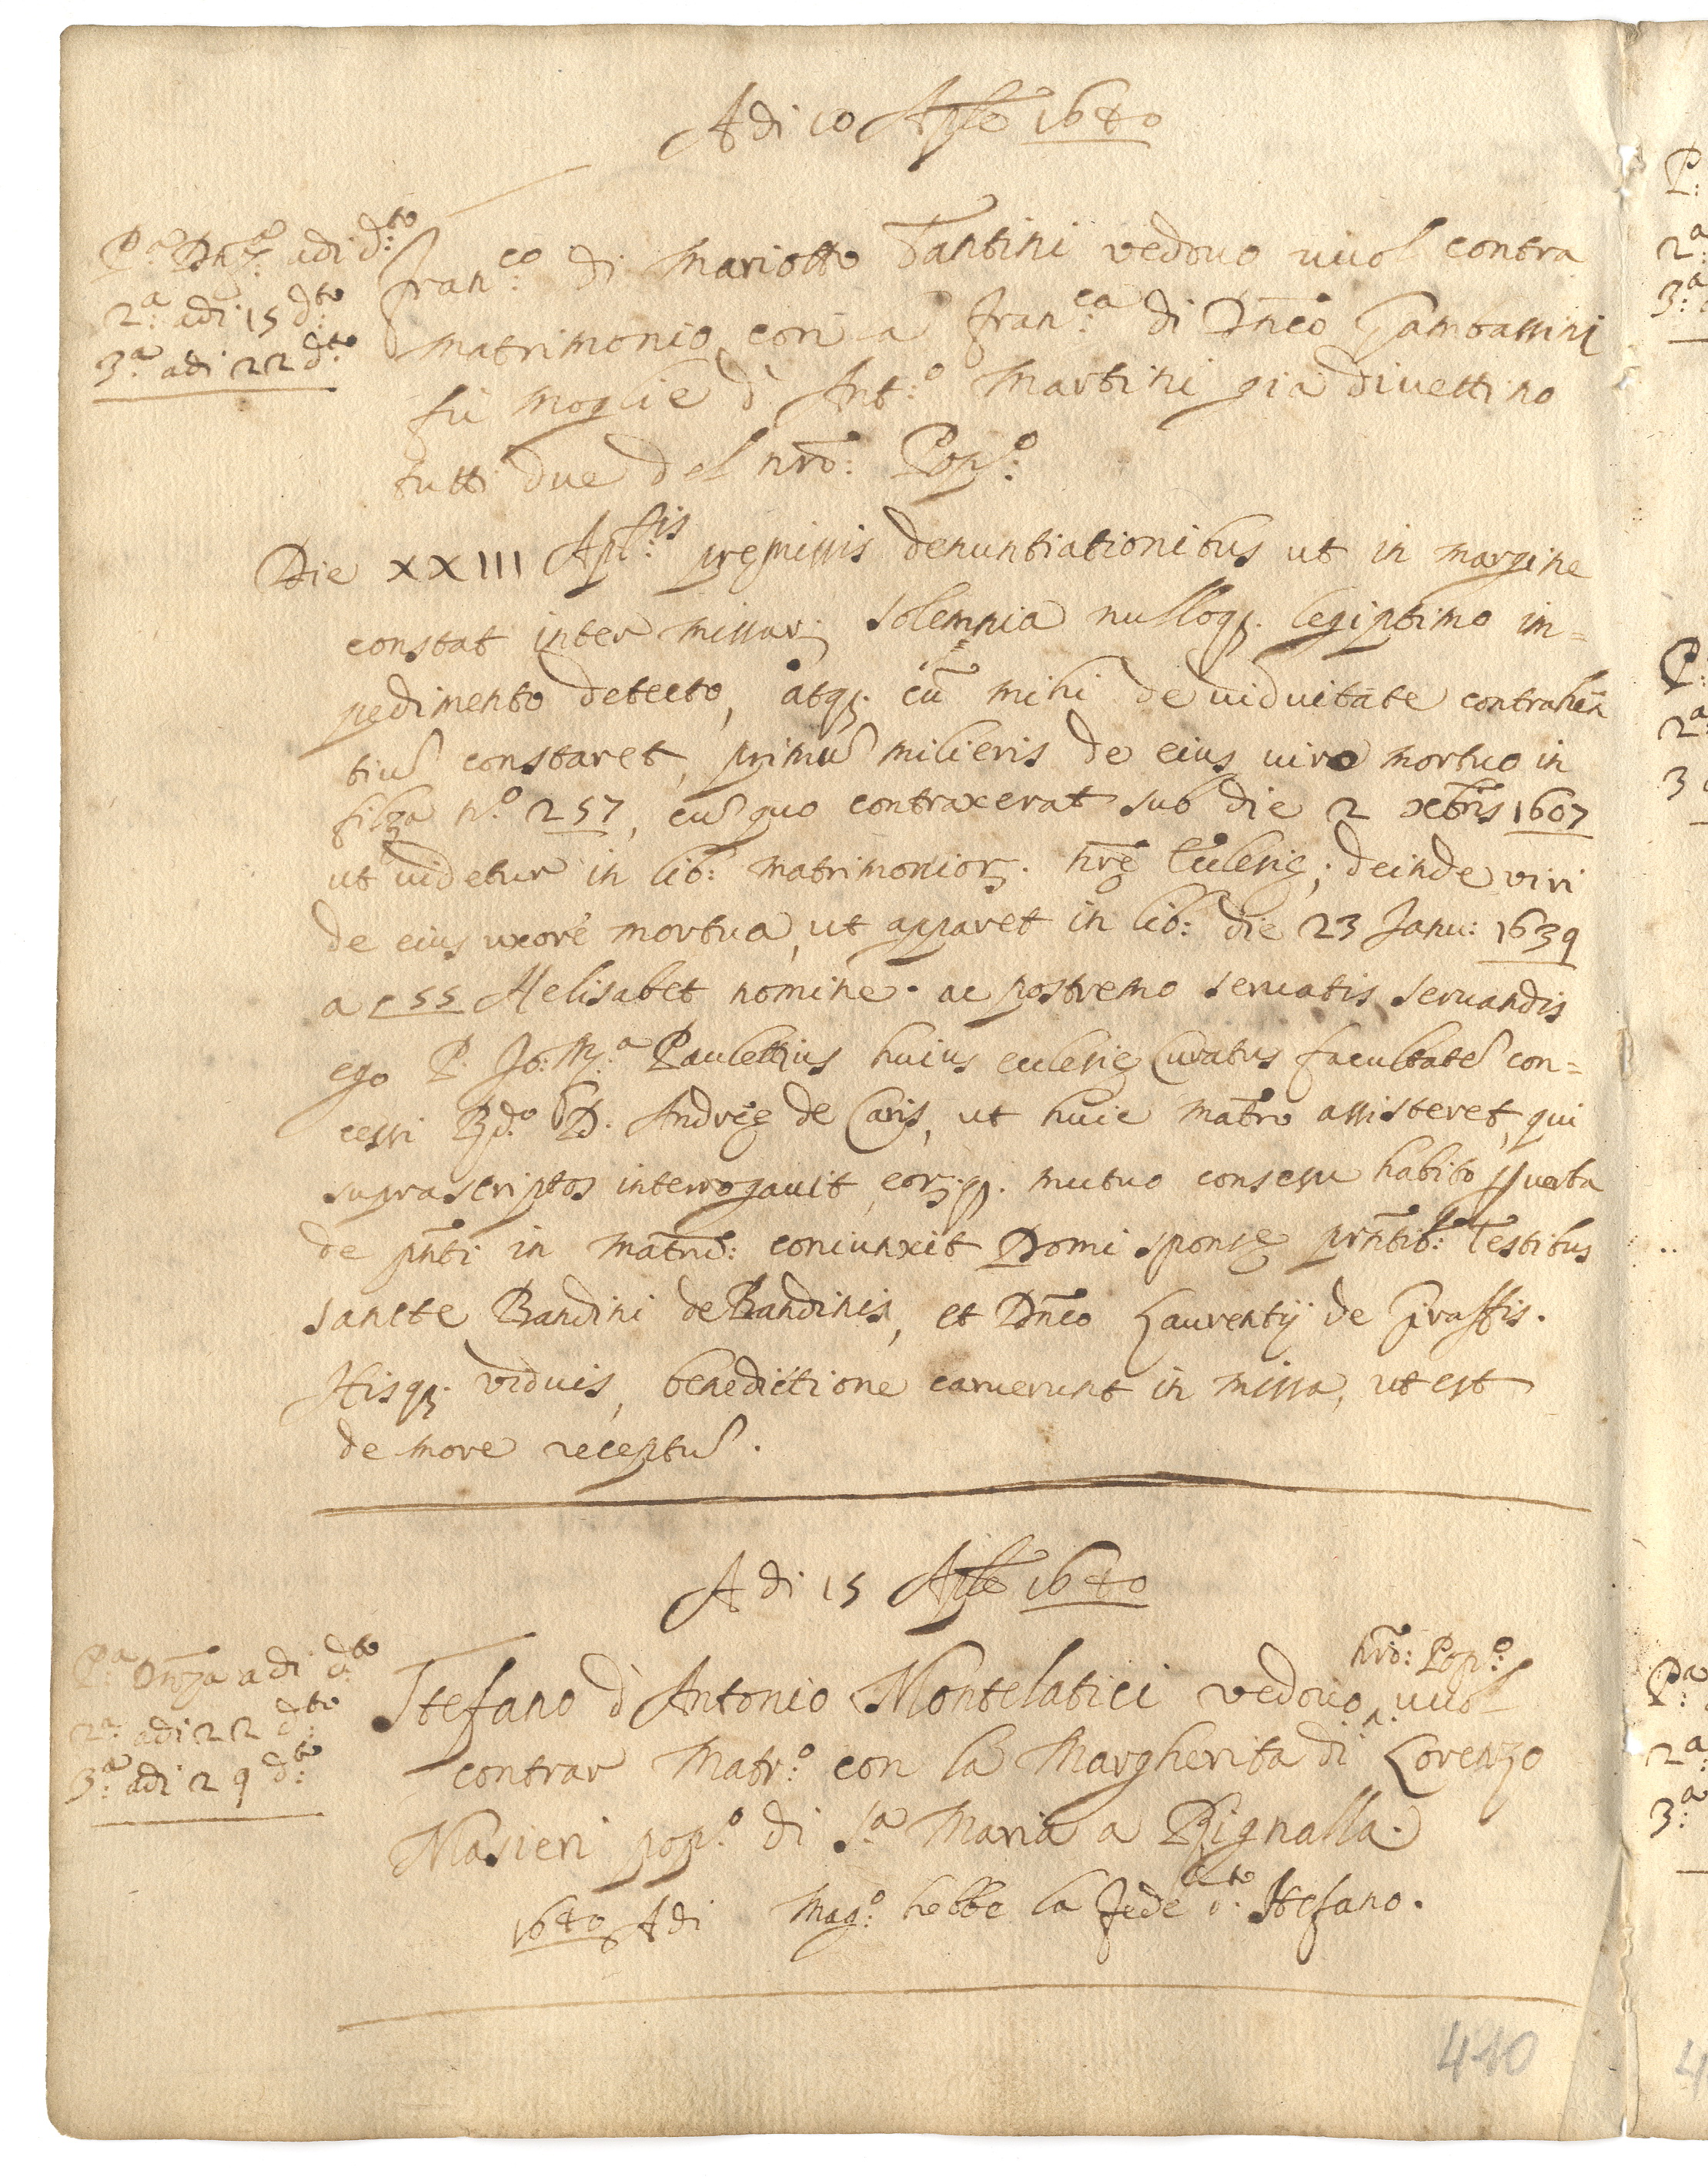 Adi 10 Aple 1640
P.a Dnza: adi d:to
2.a adi 15 d:to
3.a adi 22 d:to
Fran:co di Mariotto Tantini vedouo uuol contra
matrimonio con la Fran:ca di Dn̄co Gambassini
fù moglie d' Ant:o Martini già diuettino
tutti due del nr̄o: Pop:o
Die XXIII Apl:is premissis denuntiationibus ut in margine
constat inter missar; solemnia nulloq; legiptimo im=
pedimento detecto, atq; cū mihi de uiduitate contrahēn
tiū constaret, primū mulieris de eius uiro mortuo in
filza n.o 257, cū quo contraxerat sub die 2 xbr̄is 1607
ut uidetur in lib: matrimonior; nr̄ę Ecclesię; deinde viri
de eius uxore mortua, ut apparet in lib: die 23 Janu: 1639
a c 55 Helisabet nomine. ac postremo seruatis seruandis
ego P. Jo: M.a Paulettius huius ecclesię Curatus facultatē con=
cessi R.do D. Andreę de Caris, ut huic matr̄o assisteret, qui
suprascriptos interrogauit, eor;q; mutuo consesu habito p uerba
de pn̄ti in matr̄io: coniunxit Domi sponsę prn̄tib: Testibus
sancte Bandini de Bandinis, et Dn̄co Laurentij de Grassis.
Hisq; viduis, benedictione caruerunt in missa, ut est
de more receptū.
Adi 15 Aple 1640
P.a Dn̄za adi d:to
2.a adi 22 d:to
3.a adi 29 d:to
nr̄o: Pop:o
Stefano d' Antonio Montelatici vedouo ^ uuol
contrar Matr:o con la Margherita di Lorenzo
Masieri pop:o di S.a Maria a Rignalla.
1640 Adi Mag:o hebbe la fede d:to Stefano.
410